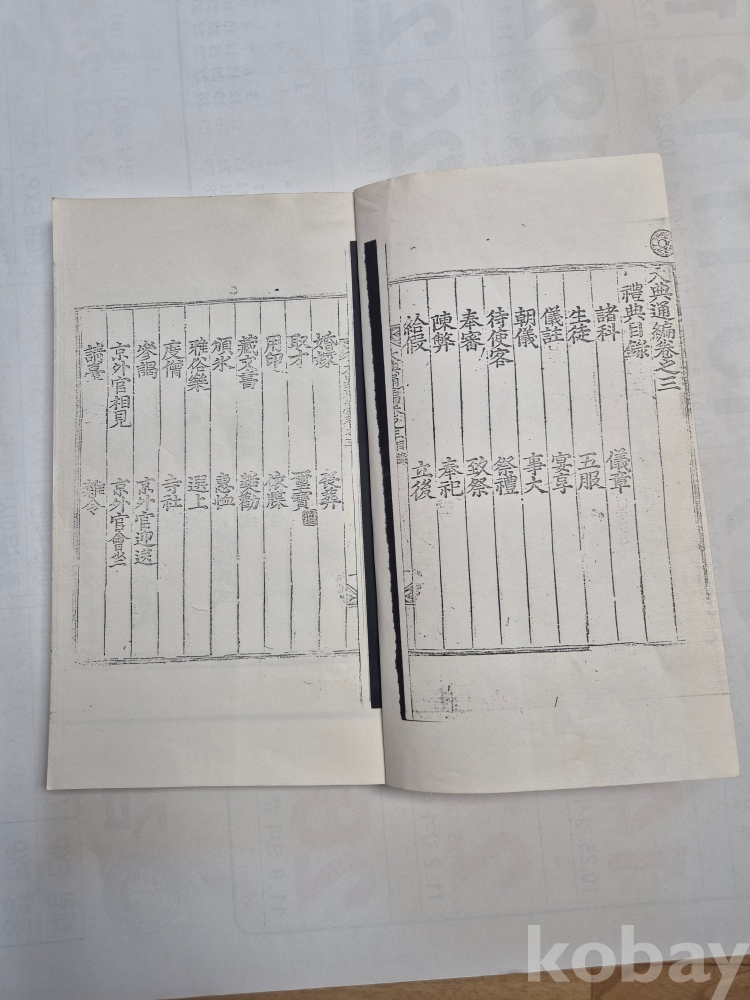 大典通編卷之三
禮典目錄
諸科 儀章
生徒 五服
儀註 宴享
朝儀 事大
待使客 祭禮
奉審 致祭
陳弊 奉祀
給假 立後
婚嫁 喪葬
取才 璽寶
用印 依牒
藏文書 奬勸
頒氷 惠恤
雅俗樂 選上
度僧 寺社
參謁 京外官迎送
京外官相見 京外官會坐
請臺 雜令
kobay